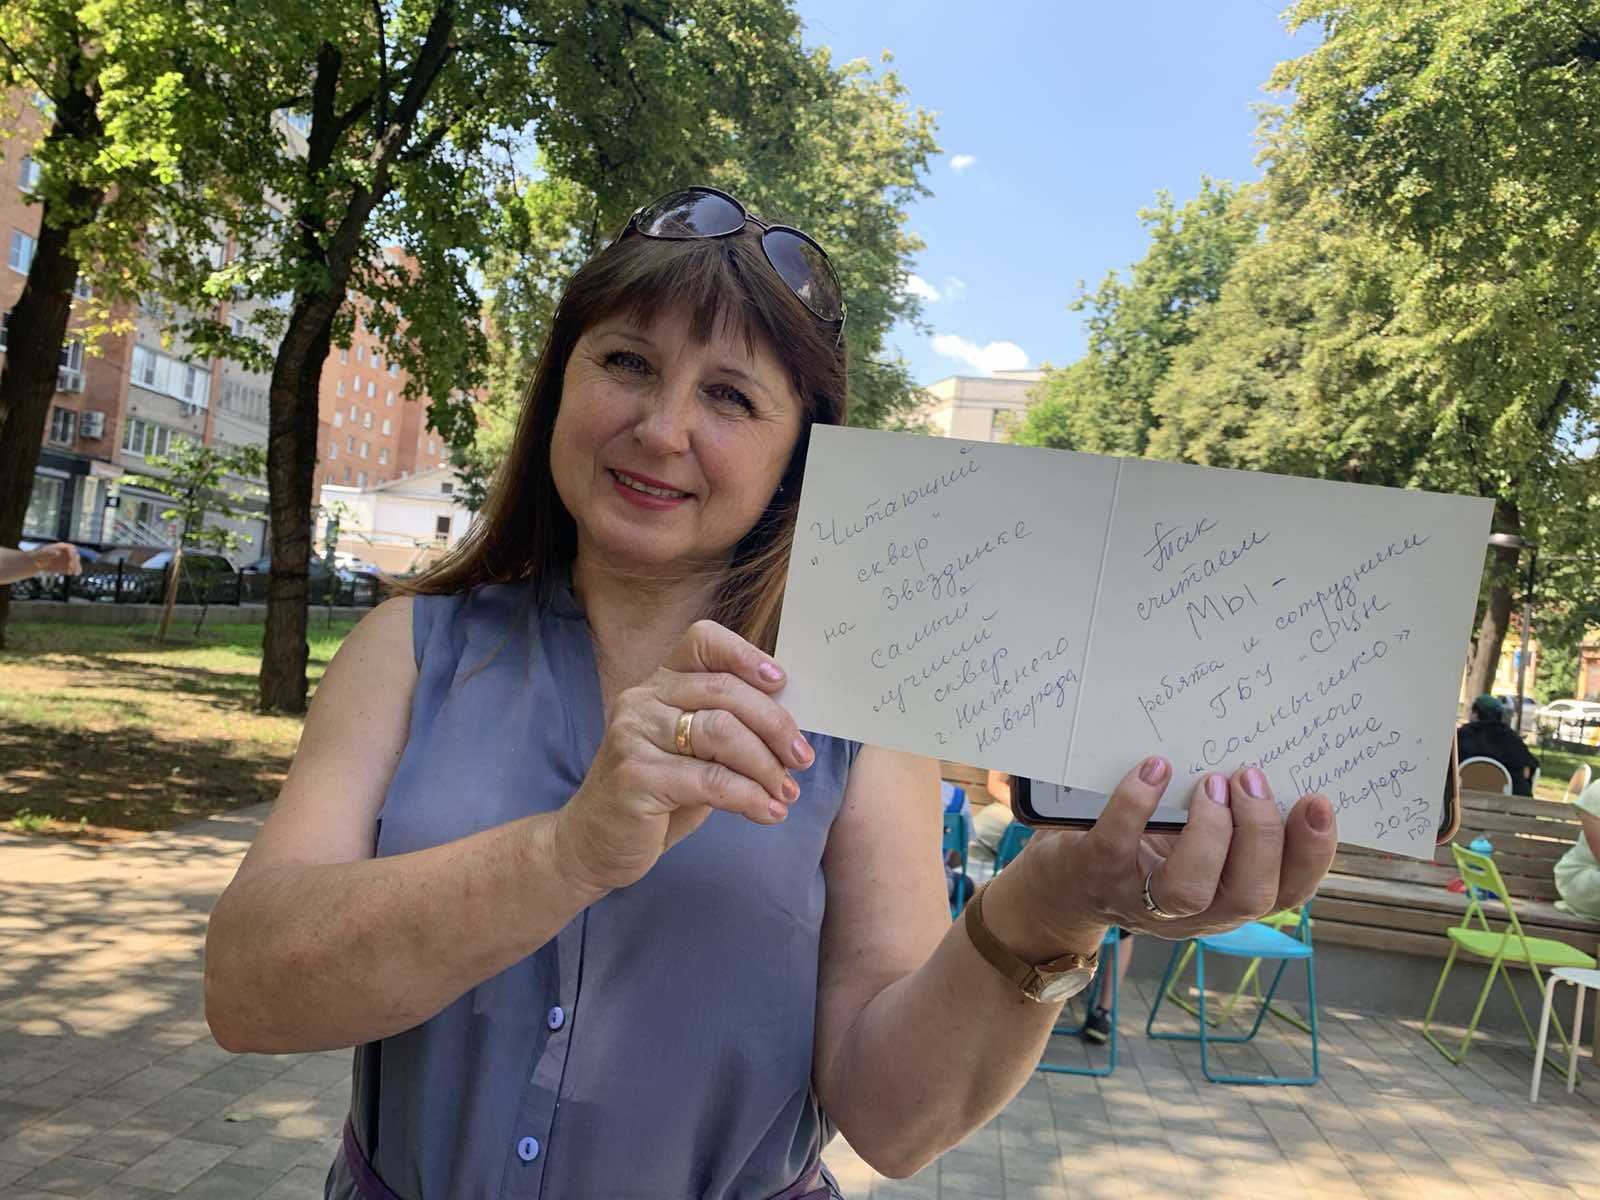 "Читающий
сквер"
на Звездинке
самый
лучший
сквер
г. Нижнего
Новгорода
Так
считаем
МЫ -
ребята и сотрудники
ГБУ "СРЦН
"Солнышко"
района
Нижнего
2023
год